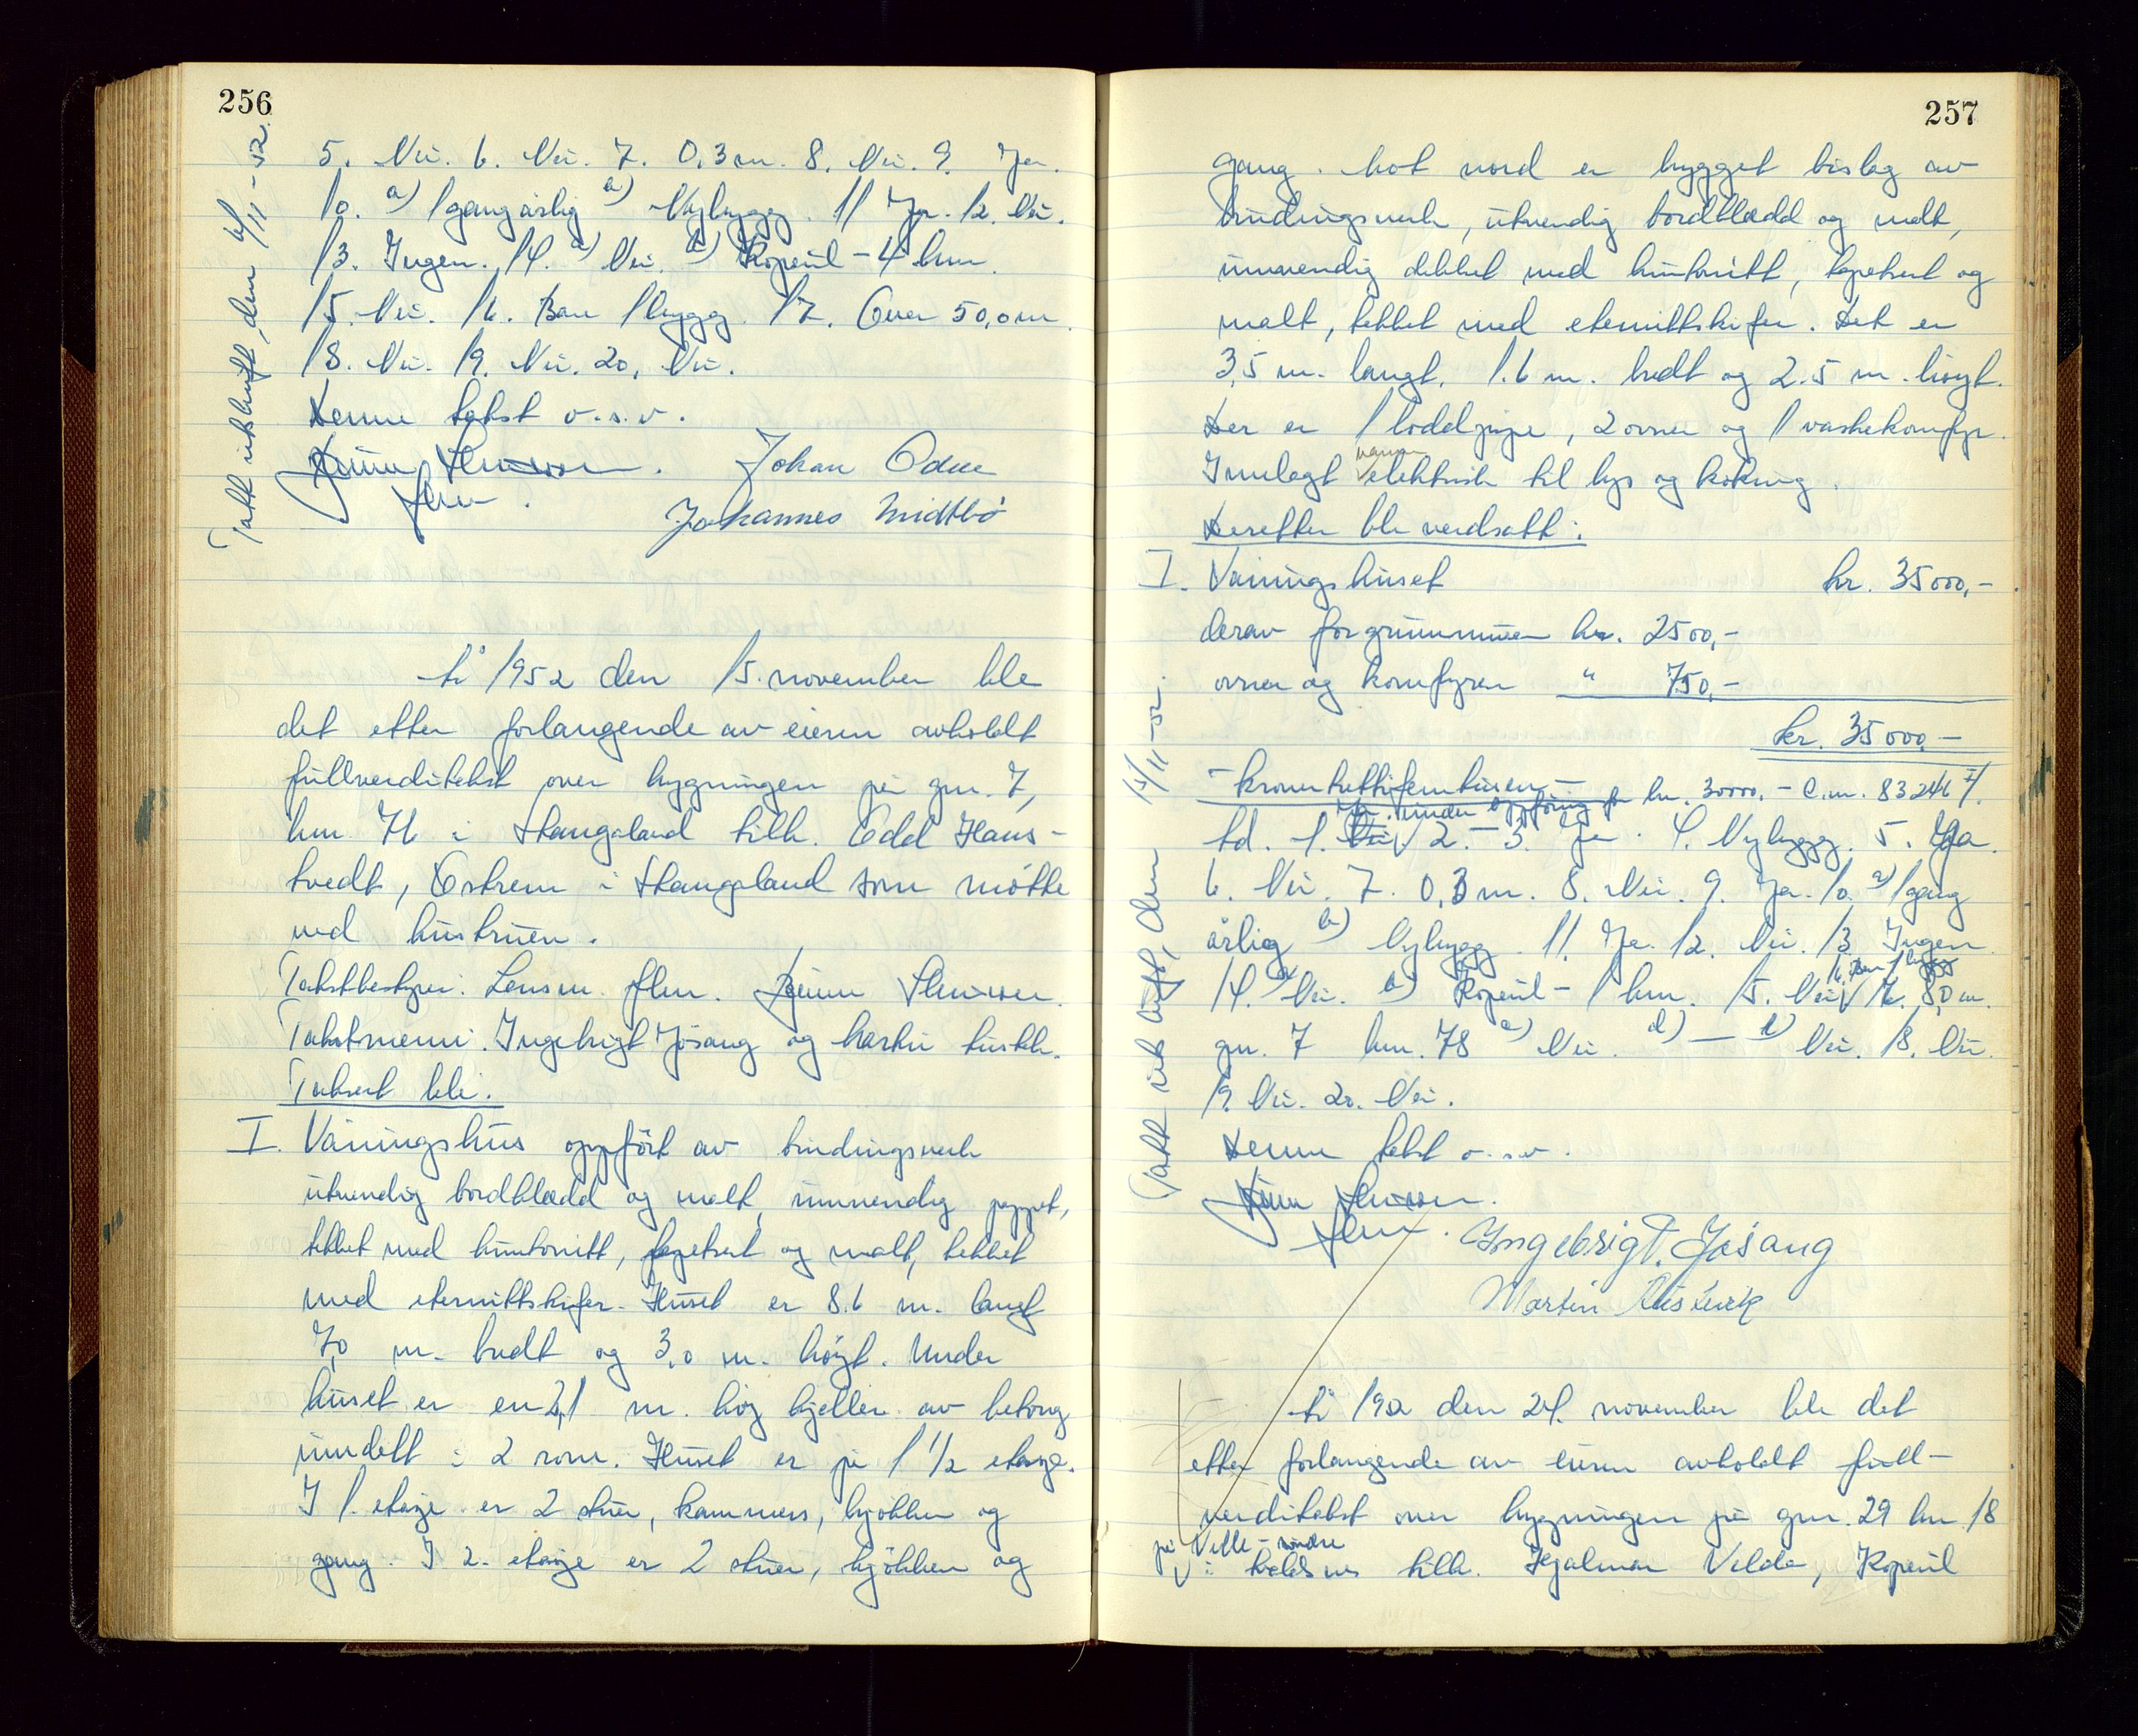 256
5. Nei. 6. Nei. 7. 0,3 m. 8. Nei. 9. Ja.
10. a) 1 gang årlig b) Nybygg. 11 Ja. 12. Nei.
13. Ingen. 14. a) Nei. b) Kopervik - 4 km.
15. Nei. 16. Bare 1 bygg. 17. Over 50,0 m.
18. Nei. 19. Nei. 20. Nei.
Denne takst o.s.v.
Johan Ådne
Johannes Midtbø
Takst utskrift, den /11-52.
År 1952 den 15. november ble
det etter forlangende av eieren avholdt
fullverditakst over bygningen på gnr. 7,
bnr. 76 i Stangaland tilh. Odd Haus-
tvedt, Østrem i Stangaland som møtte
ved hustruen.
Takstbestyrer: Lensm. flm.
Takstmenn: Ingebrigt Jøsang og
Taksert ble:
I. Våningshus oppført av bindingsverk
utvendig bordklædd og malt, innvendig pappet,
tekket med huntonitt, tapetsert og malt, tekket
med eternittskifer. Huset er 8.6 m. langt
7,0 m. bredt og 3,0 m. høyt. Under
huset er en 2,1 m. høy kjeller av betong
inndelt i 2 rom. Huset er på 1 1/2 etasje.
I 1. etasje er 2 stuer, kammers, kjøkken og
gang. I 2. etasje er 2 stuer, kjøkken og
257
gang. Mot nord er bygget bislag av
bindingsverk, utvendig bordklædd og malt,
innvendig dekket med huntonitt, tapetsert og
malt, tekket med eternittskifer. Det er
3,5 m. langt, 1.6 m. bredt og 2.5 m. høyt.
Der er 1 loddpipe, 2 ovner og 1 vaskekomfyr.
Innlagt vann elektrisk til lys og koking.
Deretter ble verdsatt:
I. Våningshuset kr. 35000,-
derav for grunnmuren kr. 2500,-
ovner og komfyren " 750,-
kr. 35000,-
- kronertrettifemtusen -
Ja. under oppføring for kr. 30000,-
Ad. 1. Nei 2. - 3. Ja. 4. Nybygg. 5. Ja.
6. Nei. 7. 0,3 m. 8. Nei. 9. Ja. 10. a) 1 gang
årlig b) Nybygg. 11. Ja. 12. Nei. 13. Ingen.
16. Bare 1 bygg
14. a) Nei. b) Kopervik - 1 km. 15. Nei 17. 8,0 m.
gnr. 7 bnr. 78 a) Nei. d) — e) Nei. 18. Nei.
19. Nei. 20. Nei.
Denne takst o.s.v.
Ingebrigt. Jøsang
Martin
Takst utskrift, den 17/11-52.
År 1952 den 24. november ble det
etter forlangende av eieren avholdt full-
verditakst over bygningen på gnr. 29 bnr. 18
på Velle - søndre
i tilh. Hjalmar Velde, Kopervik